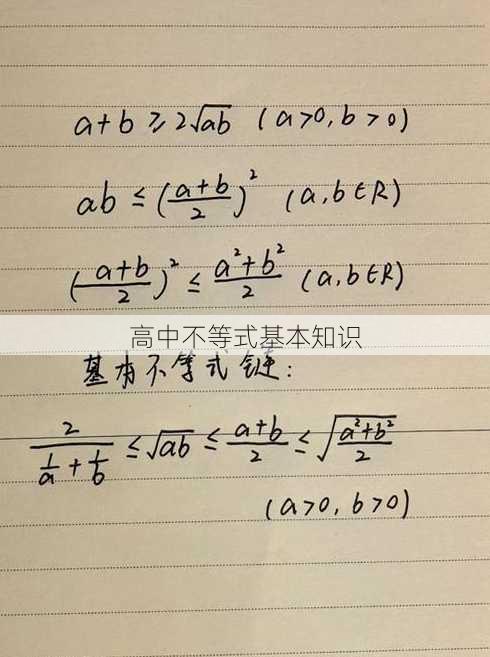 a+b ≥ 2√ab (a>0, b>0)
ab ≤ (a+b/2)² (a,b∈R)
(a+b/2)² ≤ a²+b²/2 (a,b∈R)
高中不等式基本知识
基本不等式链:
2/(1/a + 1/b) ≤ √ab ≤ a+b/2 ≤ √a²+b²/2
(a>0, b>0)